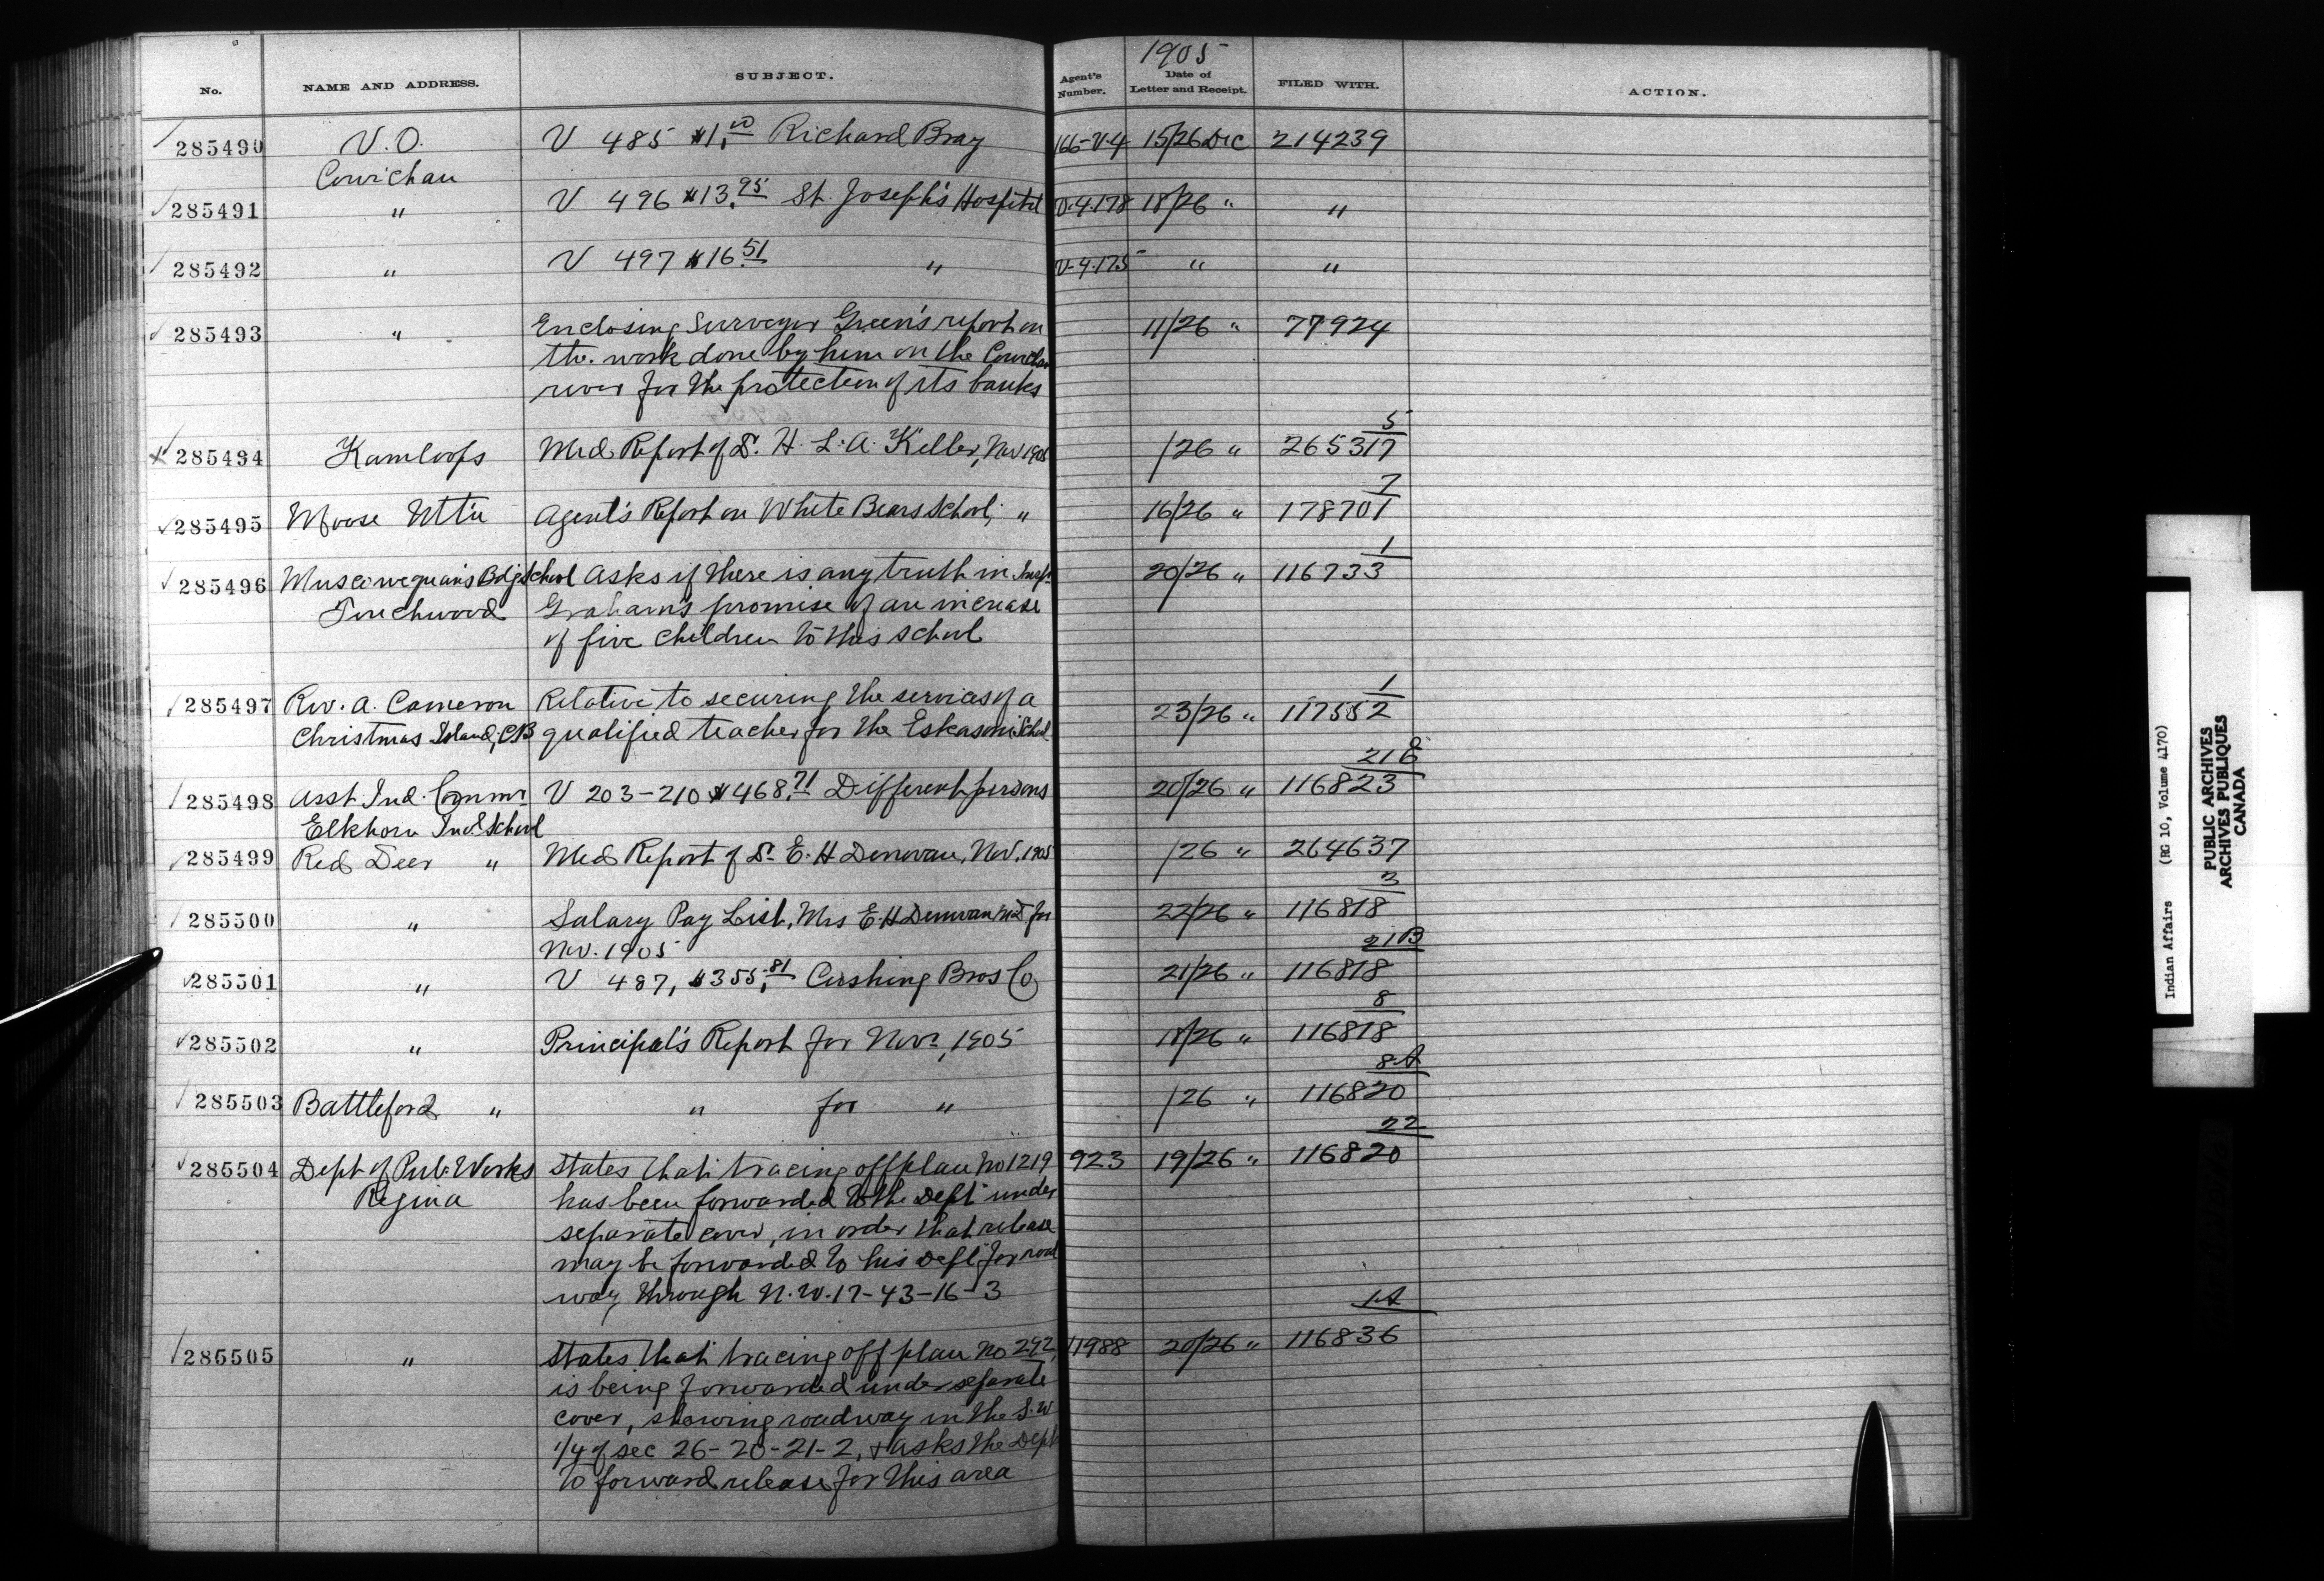 1905
No. NAME AND ADDRESS. SUBJECT. Agent's Number. Date of Letter and Receipt. FILED WITH. ACTION.
285490 V.O. V 485 $1.00 Richard Bray 166-V-4 15/26 Dec 214239
Cowichan
285491 " V 496 $13.95 St. Joseph's Hospital V-4-178 18/26 " "
285492 " V 497 $16.51 " V-4-175 " "
285493 " Enclosing Surveyor Green's report on 11/26 " 77924
the work done by him on the Cowichan
river for the protection of its banks
5
285494 Kamloops Med Report of Dr. H. L. A. Keller, Nov 1905 /26 " 265317
7
285495 Moose Mt'n Agent's Report on White Bears School, " 16/26 " 178701
1
285496 Muscowequan's Bdg School Asks if there is any truth in Insp. 20/26 " 116733
Touchwood Graham's promise of an increase
of five children to this school
1
285497 Rev. A. Cameron Relative to securing the services of a 23/26 " 117552
Christmas Island, CB qualified teacher for the Eskasoni School
21
285498 Asst. Ind. Commr V 203-210 $468.71 Different persons 20/26 " 116823
Elkhorn Indl School
285499 Red Deer " Med Report of Dr E. H Denovan, Nov. 1905 /26 " 264637
3
285500 " Salary Pay List, Mrs E. H Denovan MD for 22/26 " 116818
Nov. 1905
21B
285501 " V 487, $355.81 Cushing Bros Co 21/26 " 116818
8
285502 " Principal's Report for Nov., 1905 18/26 " 116818
8A
285503 Battleford " " for " /26 " 116820
22
285504 Dept of Pub. Works States that tracing off plan No 1219 923 19/26 " 116820
Regina has been forwarded to the Dept under
separate cover, in order that release
may be forwarded to his Dept for road
way through N.W. 17-43-16-3
1A
285505 " States that tracing off plan No 292, 11988 20/26 " 116836
is being forwarded under separate
cover, showing roadway in the S.W
1/4 of sec 26-20-21-2, & asks the Dept
to forward release for this area
Indian Affairs (RG 10, Volume 4170)
PUBLIC ARCHIVES
ARCHIVES PUBLIQUES
CANADA